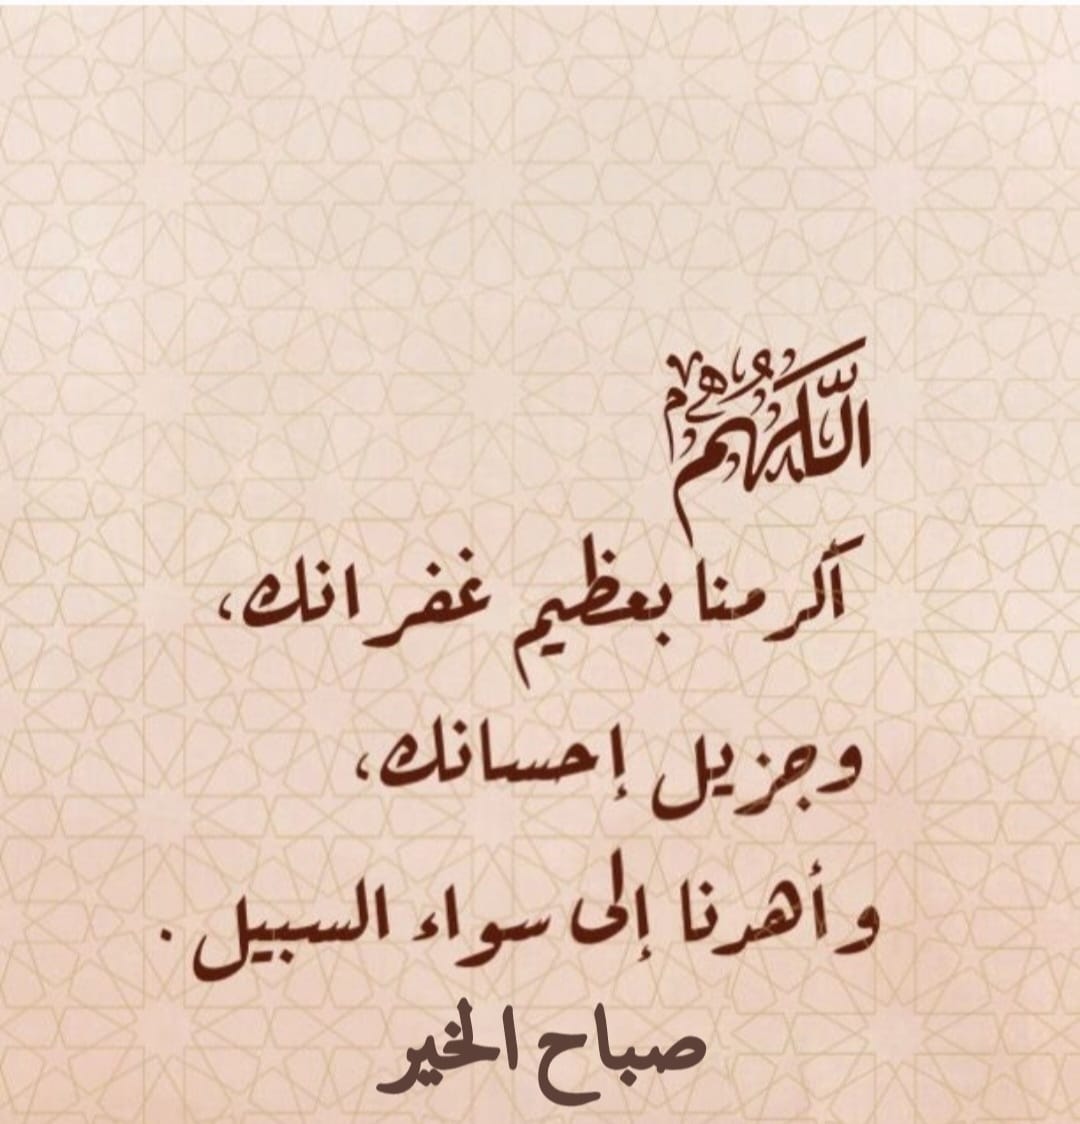 اللَّهُمَّ
أكرمنا بعظيم غفرانك،
وجزيل إحسانك،
وأهدنا إلى سواء السبيل .
صباح الخير